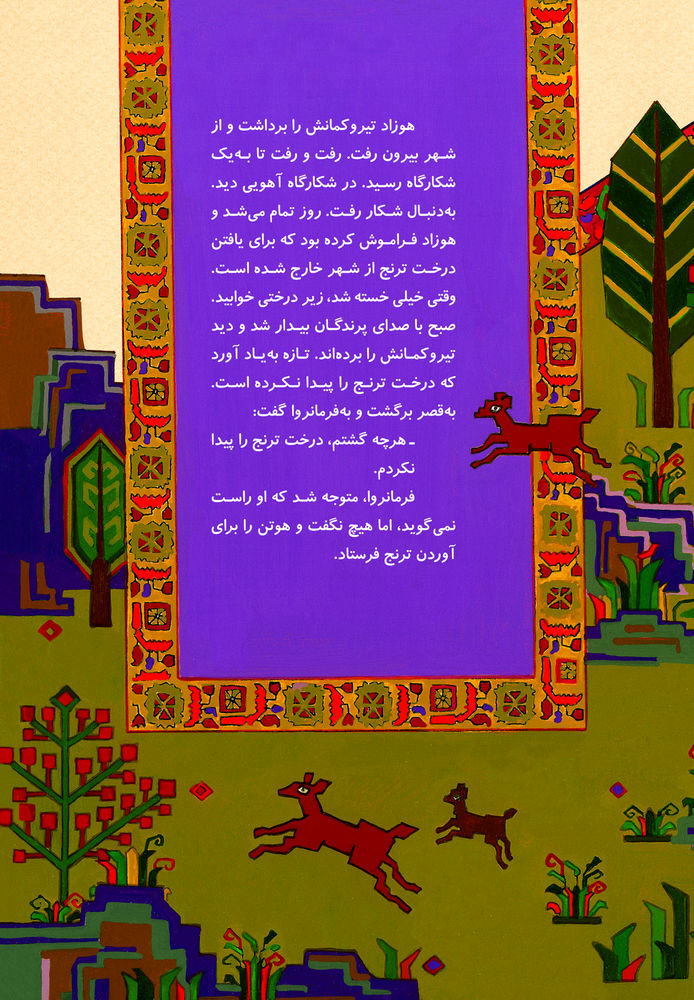 هوزاد تیروکمانش را برداشت و از
شهر بیرون رفت. رفت و رفت تا به‌یک
شکارگاه رسید. در شکارگاه آهویی دید.
به‌دنبال شکار رفت. روز تمام می‌شد و
هوزاد فراموش کرده بود که برای یافتن
درخت ترنج از شهر خارج شده است.
وقتی خیلی خسته شد، زیر درختی خوابید.
صبح با صدای پرندگان بیدار شد و دید
تیروکمانش را برده‌اند. تازه به‌یاد آورد
که درخت ترنج را پیدا نکرده است.
به‌قصر برگشت و به‌فرمانروا گفت:
ـ هرچه گشتم، درخت ترنج را پیدا
نکردم.
فرمانروا، متوجه شد که او راست
نمی‌گوید، اما هیچ نگفت و هوتن را برای
آوردن ترنج فرستاد.